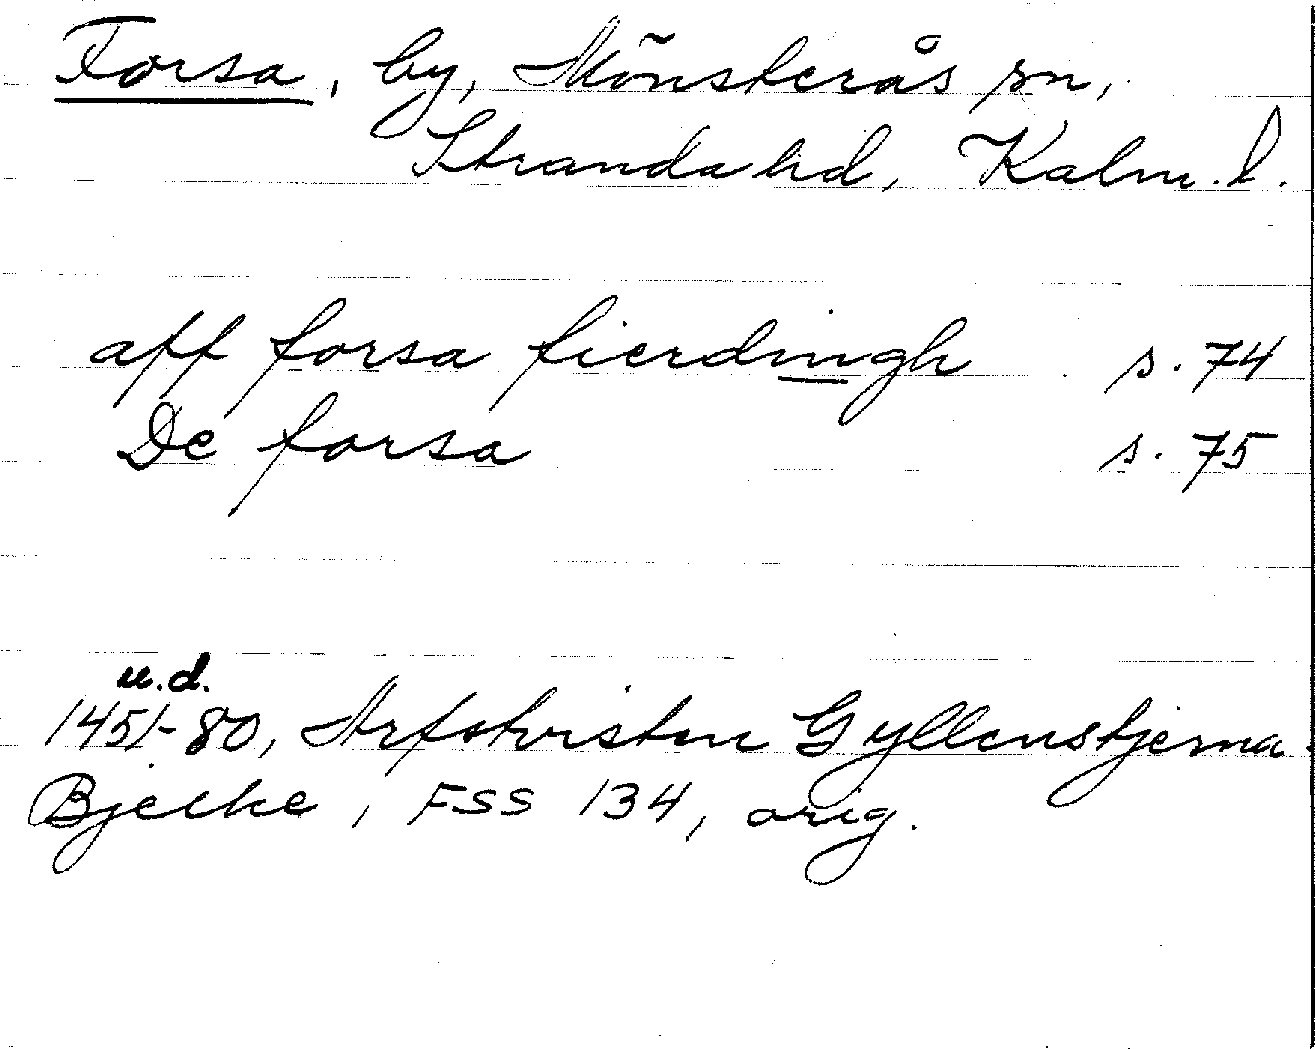 Forsa, by, Mönsterås sn,
Stranda hd, Kalm. l.
aff forsa fierdingh s. 74
De forsa s. 75
u.d.
1451-80, Arfstvisten Gyllenstjerna -
Bjelke, FSS 134, orig.